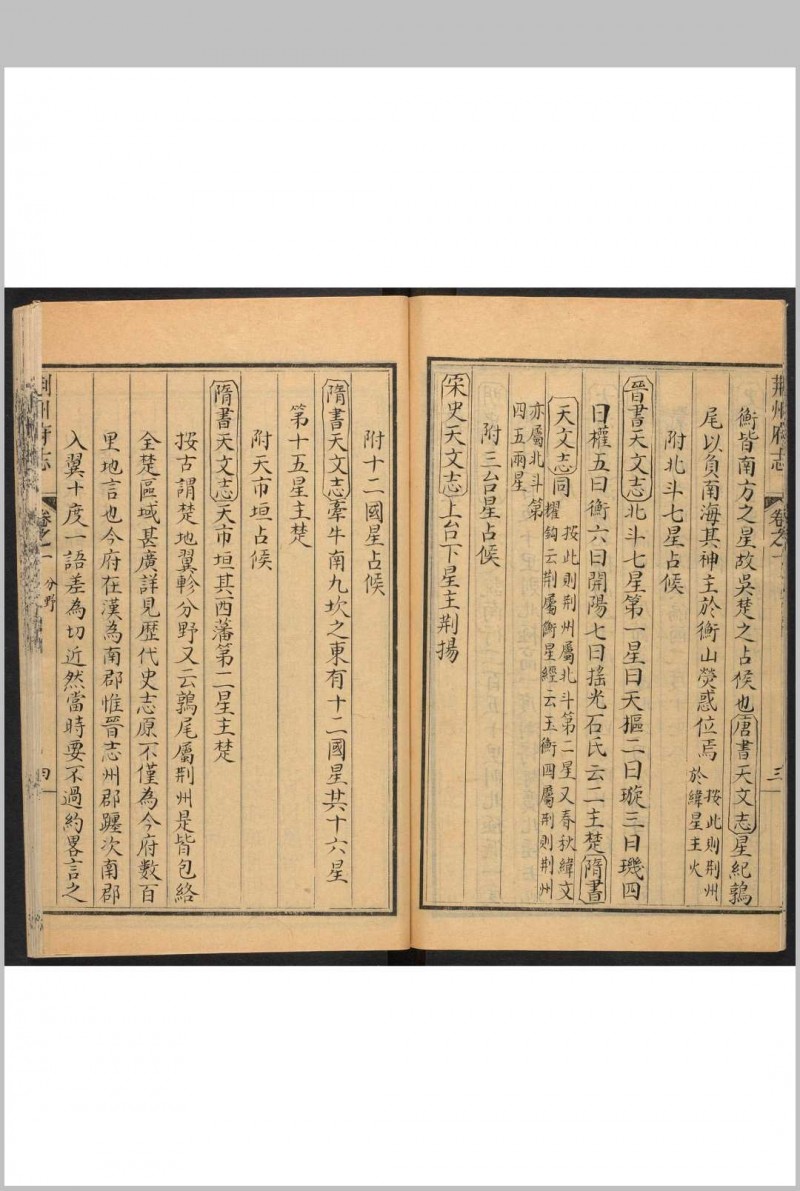 荆州府志 卷之一 三
衡皆南方之星故吳楚之占候也唐書天文志星紀鶉
尾以負南海其神主於衡山熒惑位焉按此則荆州
於緯星主火
附北斗七星占候
晉書天文志北斗七星第一星曰天樞二曰璇三曰璣四
曰權五曰衡六曰開陽七曰搖光石氏云二主楚隋書
天文志同按此則荆州屬北斗第二星又春秋緯文
耀鈎云荆屬衡星經云玉衡四屬荆則荆州
亦屬北斗第
四五兩星
附三台星占候
宋史天文志上台下星主荆揚
附十二國星占候
隋書天文志牽牛南九坎之東有十二國星其十六星
第十五星主楚
附天市垣占候
隋書天文志天市垣其西藩第二星主楚
按古謂楚地翼軫分野又云鶉尾屬荆州是皆包絡
全楚區域甚廣詳見歷代史志原不僅為今府數百
里地言也今府在漢為南郡惟晉志州郡躔次南郡
入翼十度一語差為切近然當時要不過約畧言之
荆州府志 卷之一 分野 四